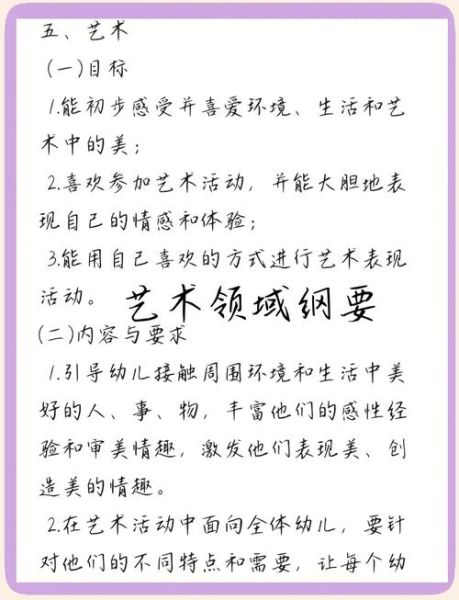 五、艺术
(一)目标
1.能初步感受并喜爱环境、生活和艺
术中的美;
2.喜欢参加艺术活动，并能大胆地表
现自己的情感和体验;
3.能用自己喜欢的方式进行艺术表现
活动。
艺术领域纲要
(二)内容与要求
1.引导幼儿接触周围环境和生活中美
好的人、事、物，丰富他们的感性经
验和审美情趣，激发他们表现美、创
造美的情趣。
2.在艺术活动中面向全体幼儿，要针
对他们的不同特点和需要，让每个幼